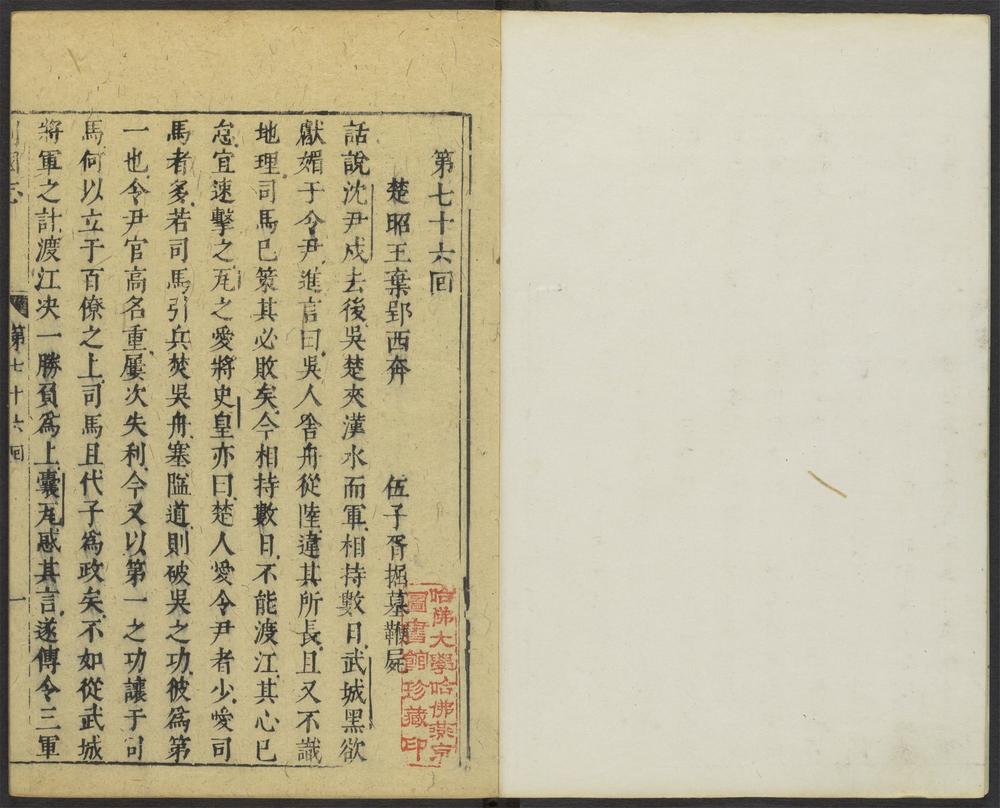 第七十六回
楚昭王棄郢西奔　伍子胥掘墓鞭屍
話說沈尹戍去後吳楚夾漢水而軍相持數日武城黑欲
獻媚于令尹進言曰吳人舍舟從陸違其所長且又不識
地理司馬已策其必敗矣今相持數日不能渡江其心已
怠宜速擊之瓦之愛將史皇亦曰楚人愛令尹者少愛司
馬者多若司馬引兵焚吳舟塞隘道則破吳之功彼爲第
一也令尹官高名重屢次失利今又以第一之功讓于司
馬何以立于百僚之上司馬且代子爲政矣不如從武城
將軍之計渡江決一勝負爲上囊瓦惑其言遂傳令三軍
列國志　第七十六回　一
哈佛大學哈佛燕京
圖書館珍藏印